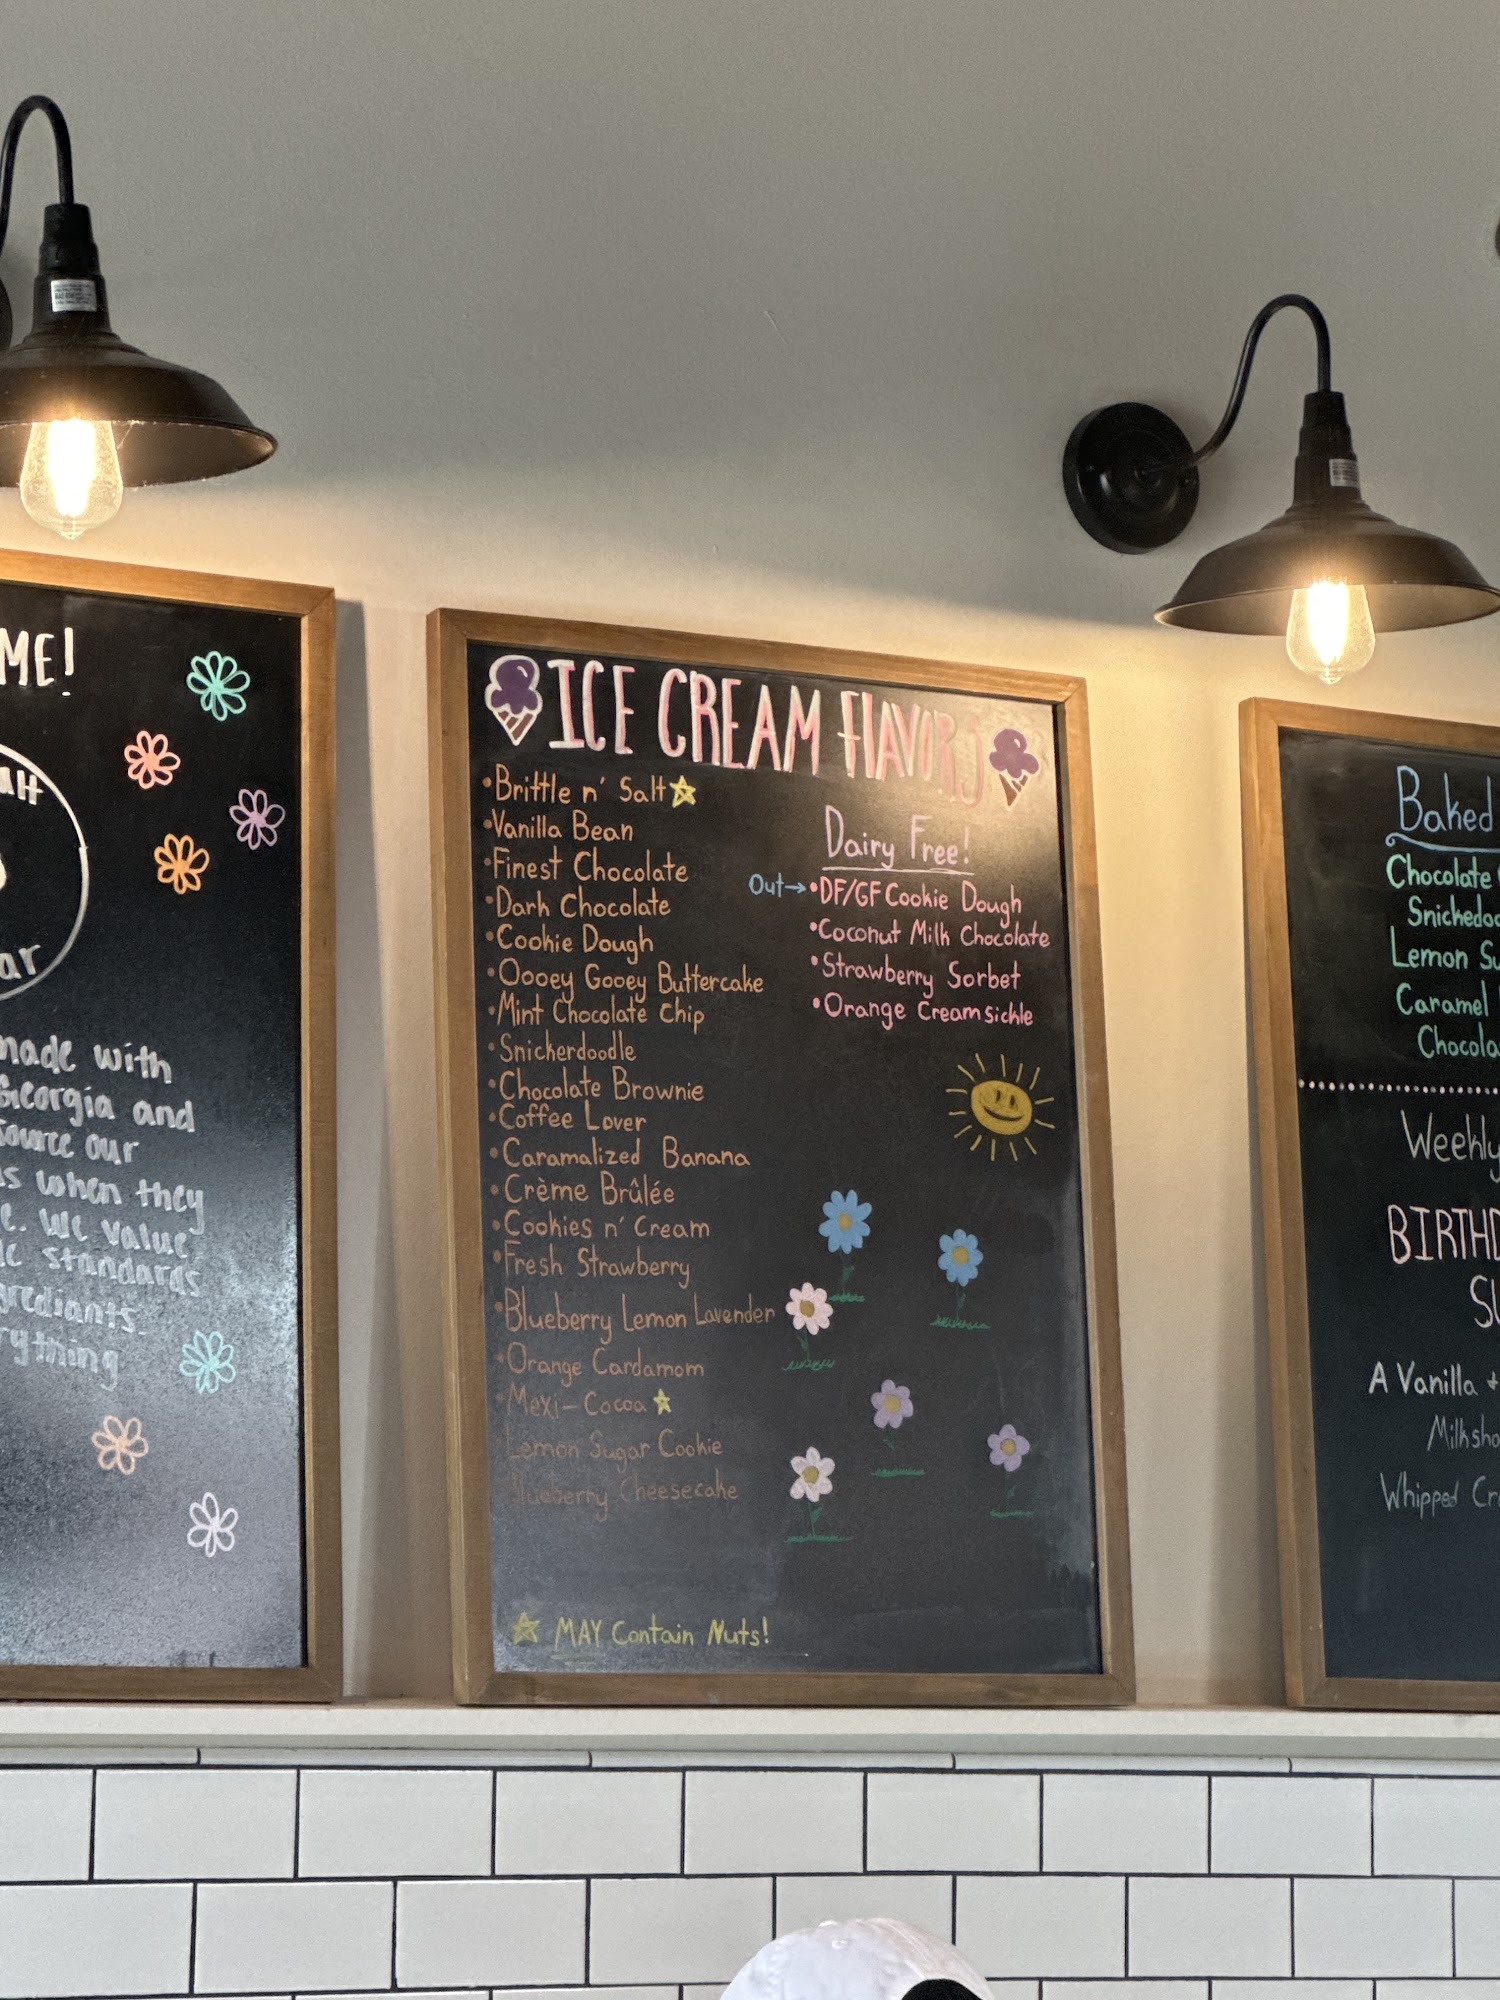 ME!
ar
made with
Georgia and
source our
when they
We value
standards
ything
ICE CREAM FLAVORS
• Brittle n' Salt
• Vanilla Bean
• Finest Chocolate
• Dark Chocolate
• Cookie Dough
• Oooey Gooey Buttercake
• Mint Chocolate Chip
• Snickerdoodle
• Chocolate Brownie
• Coffee Lover
• Caramalized Banana
• Crème Brûlée
• Cookies n' Cream
• Fresh Strawberry
• Blueberry Lemon Lavender
• Orange Cardamom
• Mexi-Cocoa
Lemon Sugar Cookie
Blueberry Cheesecake
MAY Contain Nuts!
Dairy Free!
Out→ • DF/GF Cookie Dough
• Coconut Milk Chocolate
• Strawberry Sorbet
• Orange Creamsickle
Baked
Chocolate
Snickedoo
Lemon Su
Caramel
Chocola
Weekly
BIRTHD
SU
A Vanilla +
Milksha
Whipped Cr